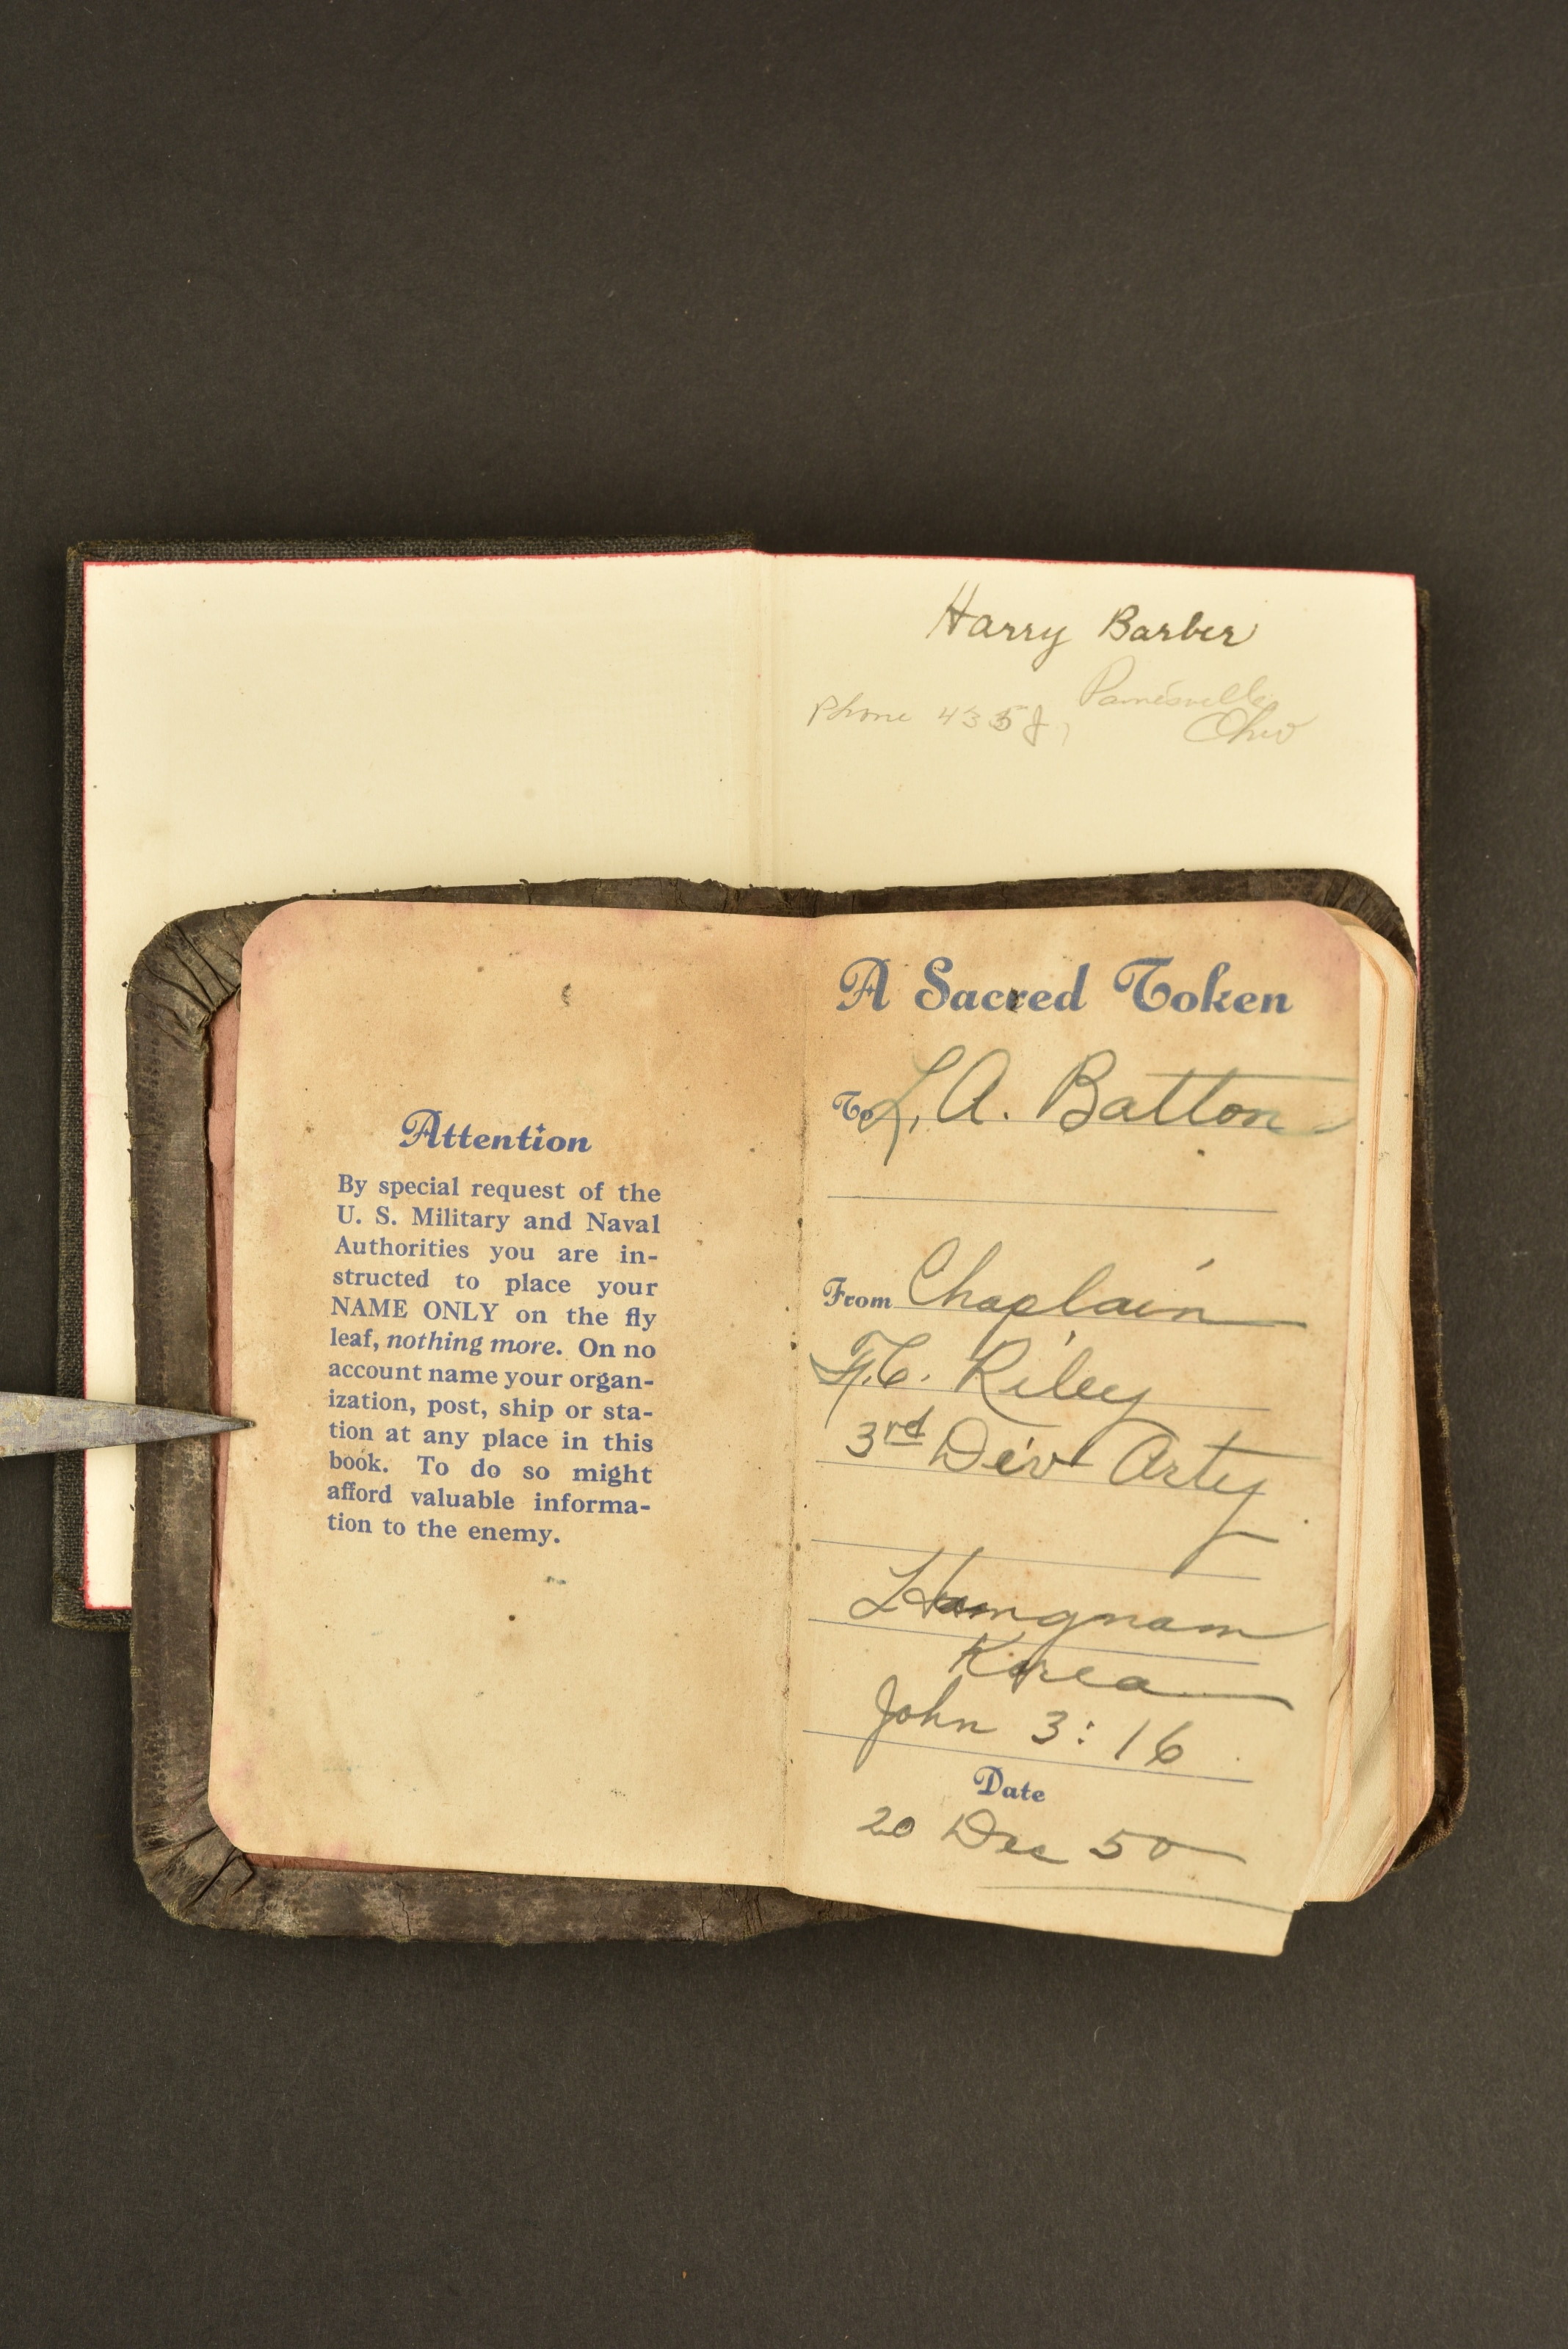 Harry Barber
Phone 4335J, Painesville
Ohio
Attention
By special request of the
U. S. Military and Naval
Authorities you are in-
structed to place your
NAME ONLY on the fly
leaf, nothing more. On no
account name your organ-
ization, post, ship or sta-
tion at any place in this
book. To do so might
afford valuable informa-
tion to the enemy.
A Sacred Token
To L. A. Batton
From Chaplain
F. C. Riley
3rd Div Arty
Hamgnam
Korea
John 3:16
Date
20 Dec 50